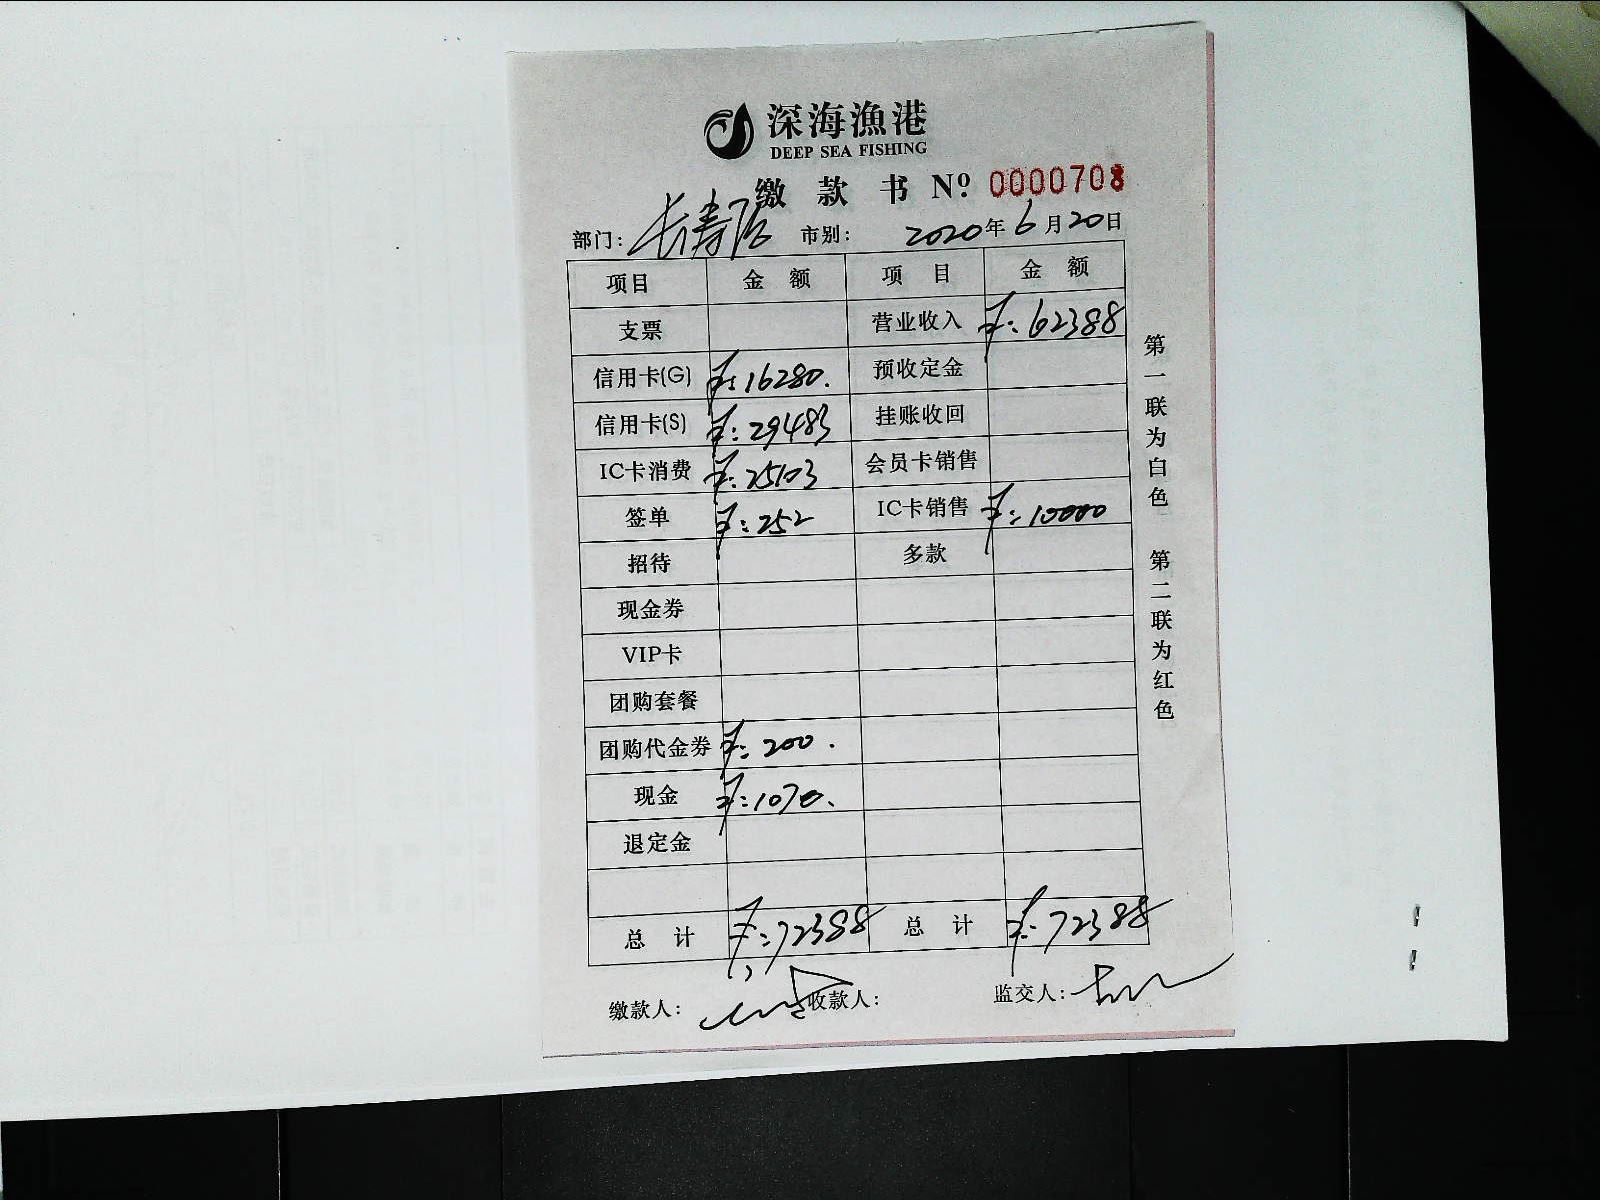 深海漁港
DEEP SEA FISHING
缴款书 Nº. 0000708
部门: 长寿店 市别: 2020年6月20日
项目 金额 项目 金额
支票 营业收入 ¥:62388
信用卡(G) ¥:16280. 预收定金
信用卡(S) ¥:29483 挂账收回
IC卡消费 ¥:25103 会员卡销售
签单 ¥:252 IC卡销售 ¥:10000
招待 多款
现金券
VIP卡
团购套餐
团购代金券 ¥:200.
现金 ¥:1070.
退定金
总计 ¥:72388 总计 ¥:72388
缴款人: 收款人: 监交人:
第一联为白色 第二联为红色